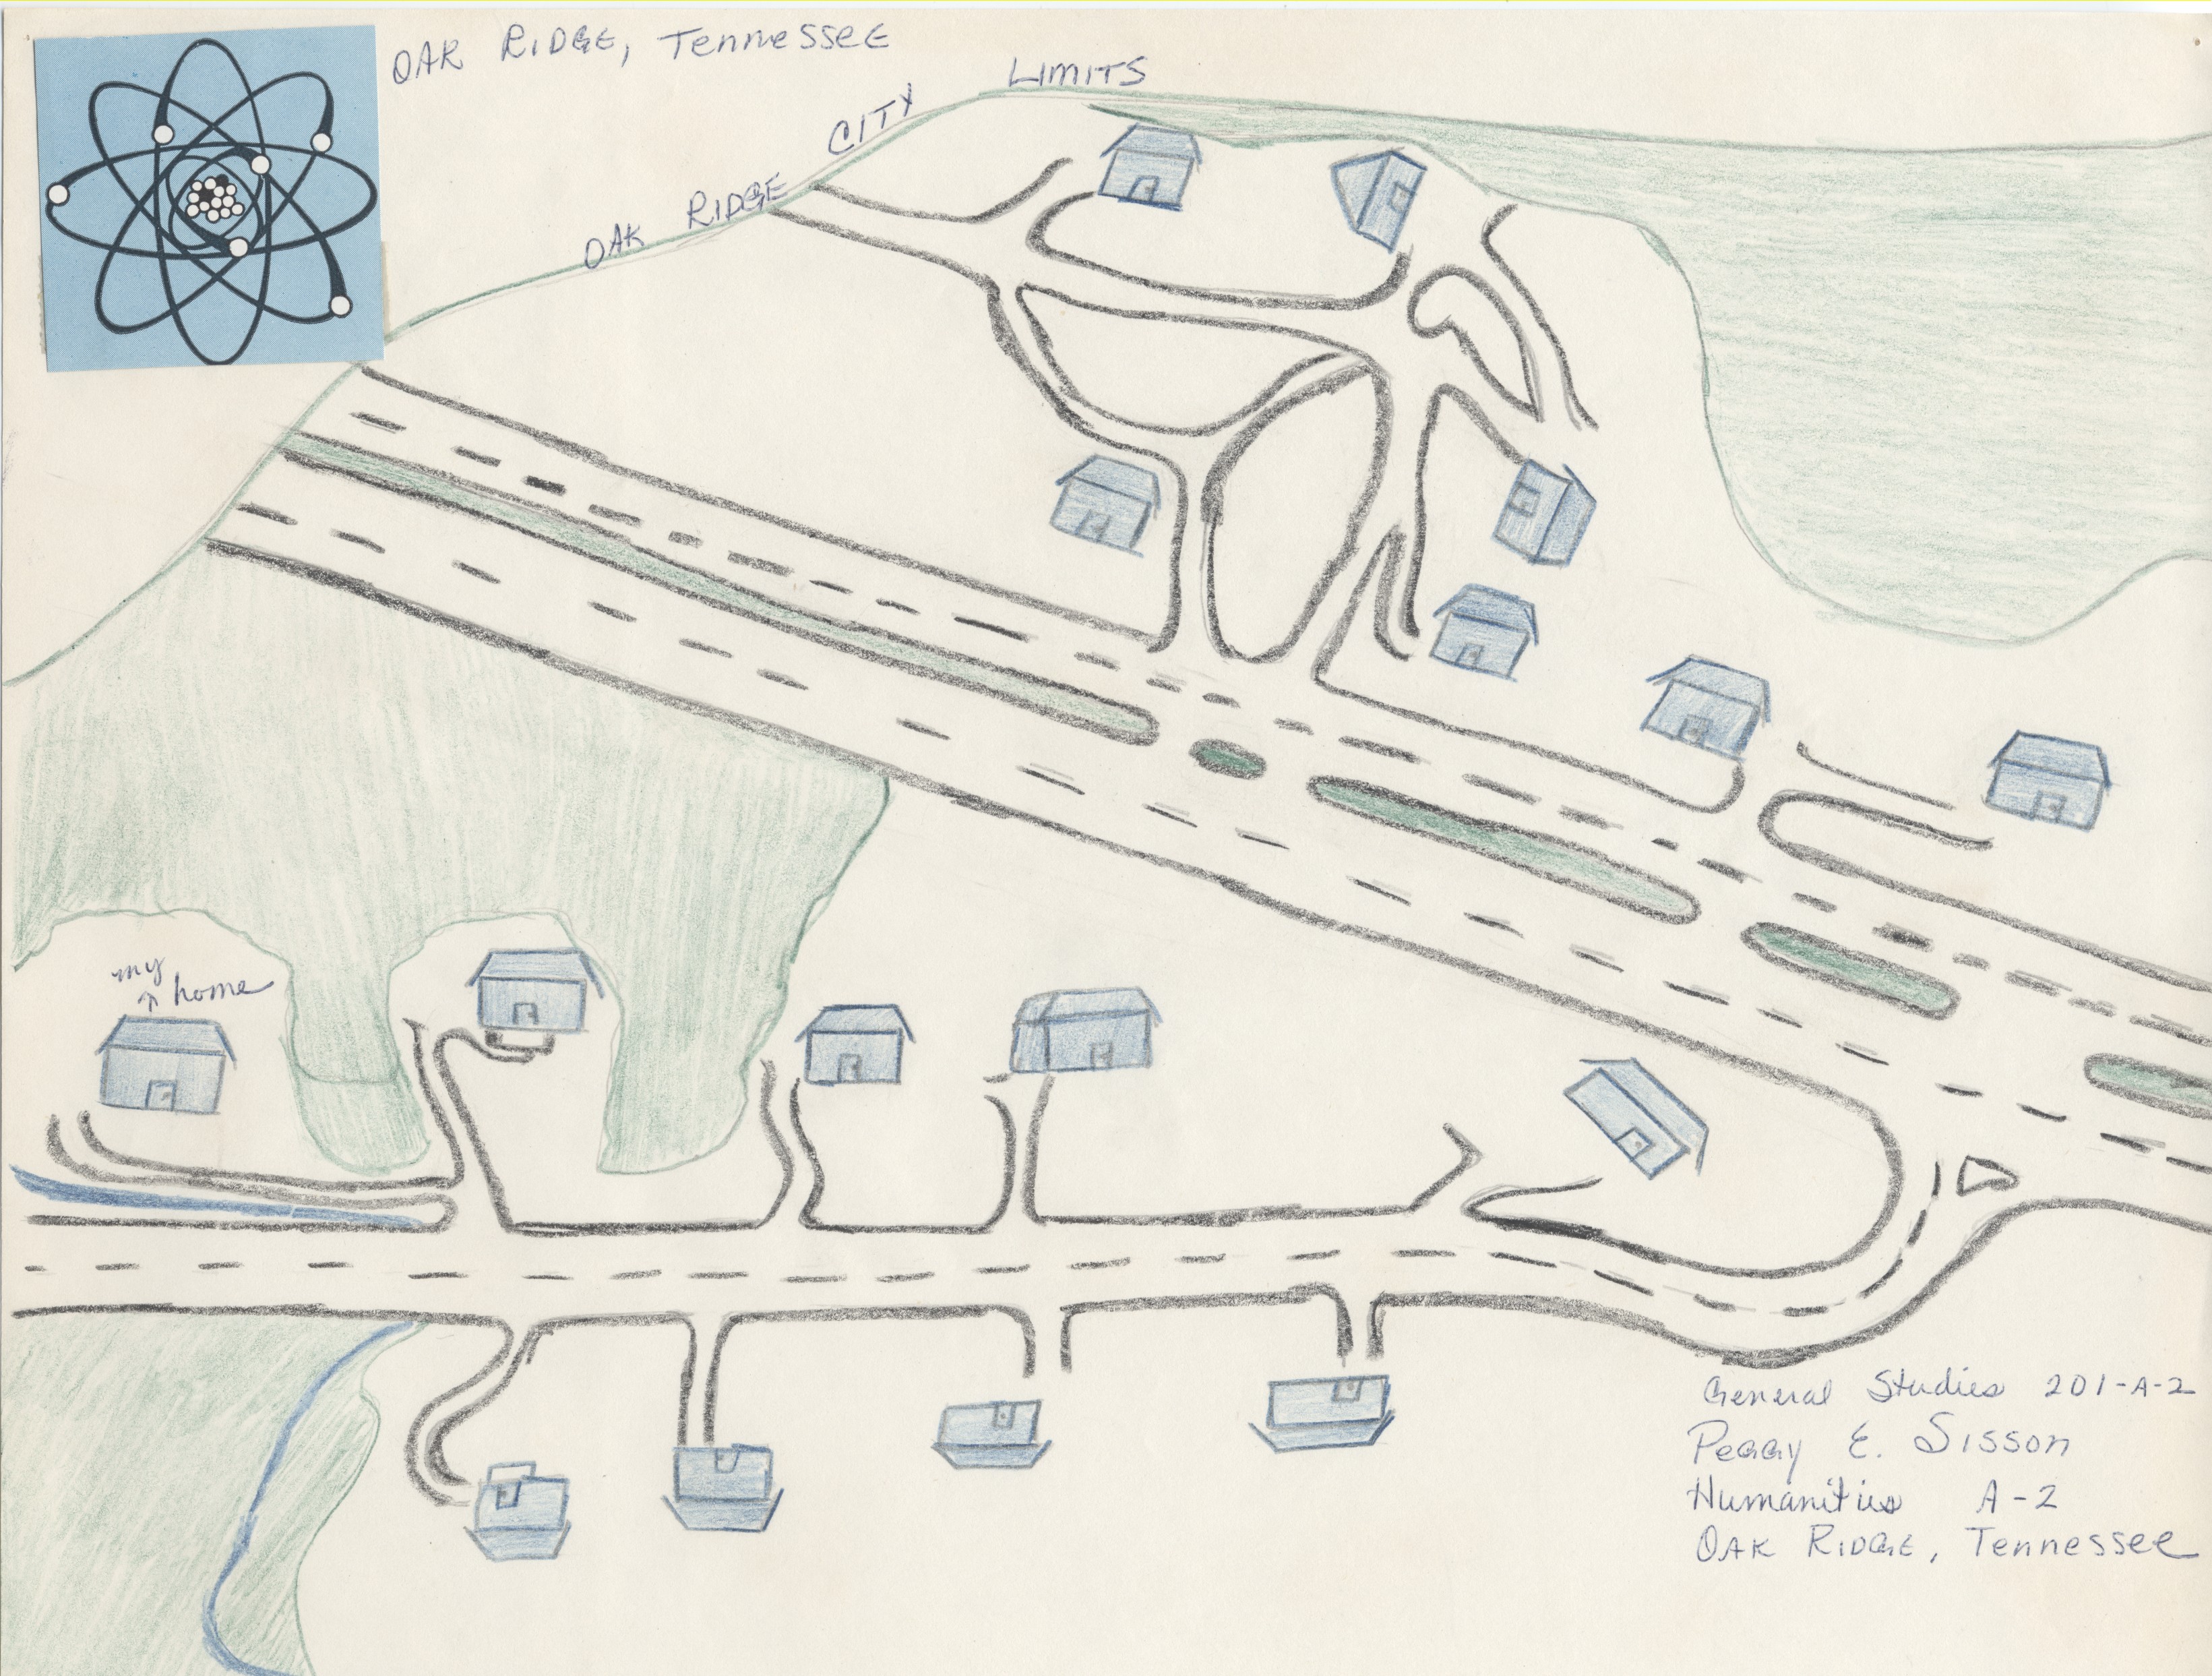 OAK RIDGE, TennesseE
OAK RIDGE CITY LIMITS
my
home
General Studies 201-A-2
Peggy E. Sisson
Humanities A-2
OAK RIDGE, Tennessee